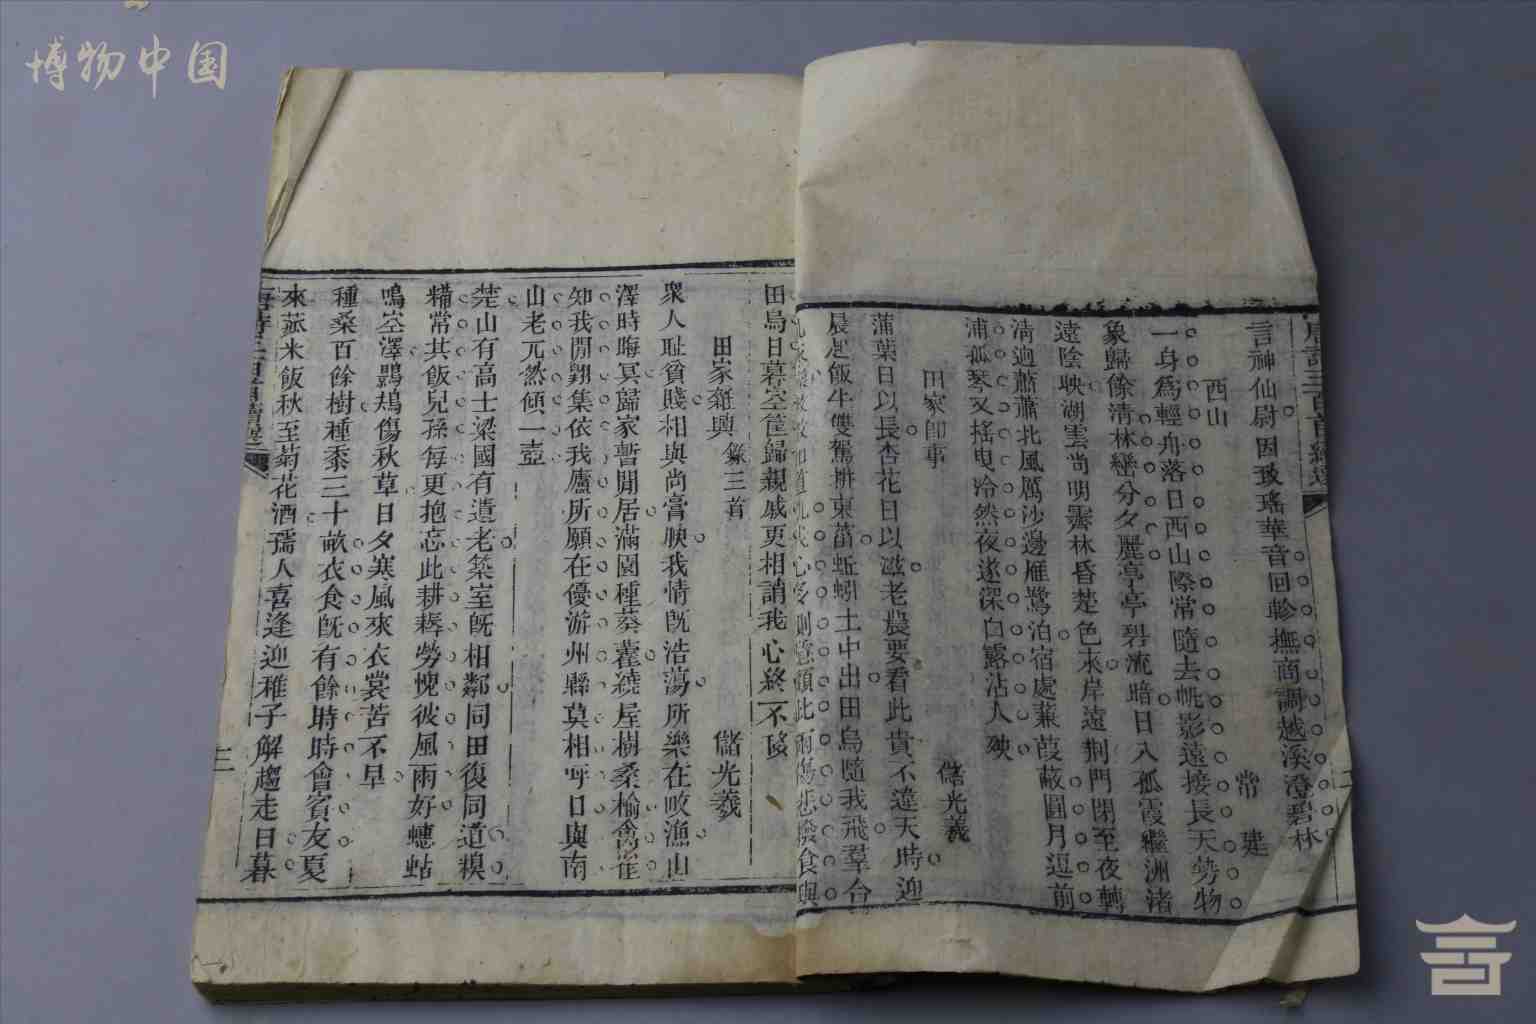 博物中国
唐詩三百首續選
言神仙尉因致瑤華音回軫撫商調越溪澄碧林
西山
常建
一身為輕舟落日西山際常隨去帆影遠接長天勢物
象歸餘清林巒分夕麗亭亭碧流暗日入孤霞繼洲渚
遠陰映湖雲尚明霽林昏楚色來岸遠荊門閉至夜轉
清迥蕭蕭北風厲沙邊雁鷺泊宿處蒹葭蔽圓月逗前
浦孤琴又搖曳泠然夜遂深白露沾人袂
田家即事
儲光羲
蒲葉日以長杏花日以滋老農要看此貴不違天時迎
晨起飯牛雙駕耕東菑蚯蚓土中出田烏隨我飛羣合
我心多惻隱顧此兩傷悲撥食與
田烏日暮空筐歸親戚更相誚我心終不移
田家雜興 錄三首
儲光羲
衆人耻貧賤相與尚膏腴我情旣浩蕩所樂在畋漁山
澤時晦冥歸家暫閒居滿園種葵藿繞屋樹桑榆禽雀
知我閒翺集依我廬所願在優游州縣莫相呼日與南
山老兀然傾一壺
楚山有高士梁國有遺老築室旣相鄰同田復同道糗
糒常共飯兒孫每更抱忘此耕耨勞愧彼風雨好蟪蛄
鳴空澤鶗鴂傷秋草日夕寒風來衣裳苦不早
種桑百餘樹種黍三十畝衣食旣有餘時時會賓友夏
來菰米飯秋至菊花酒孺人喜逢迎稚子解趨走日暮
三